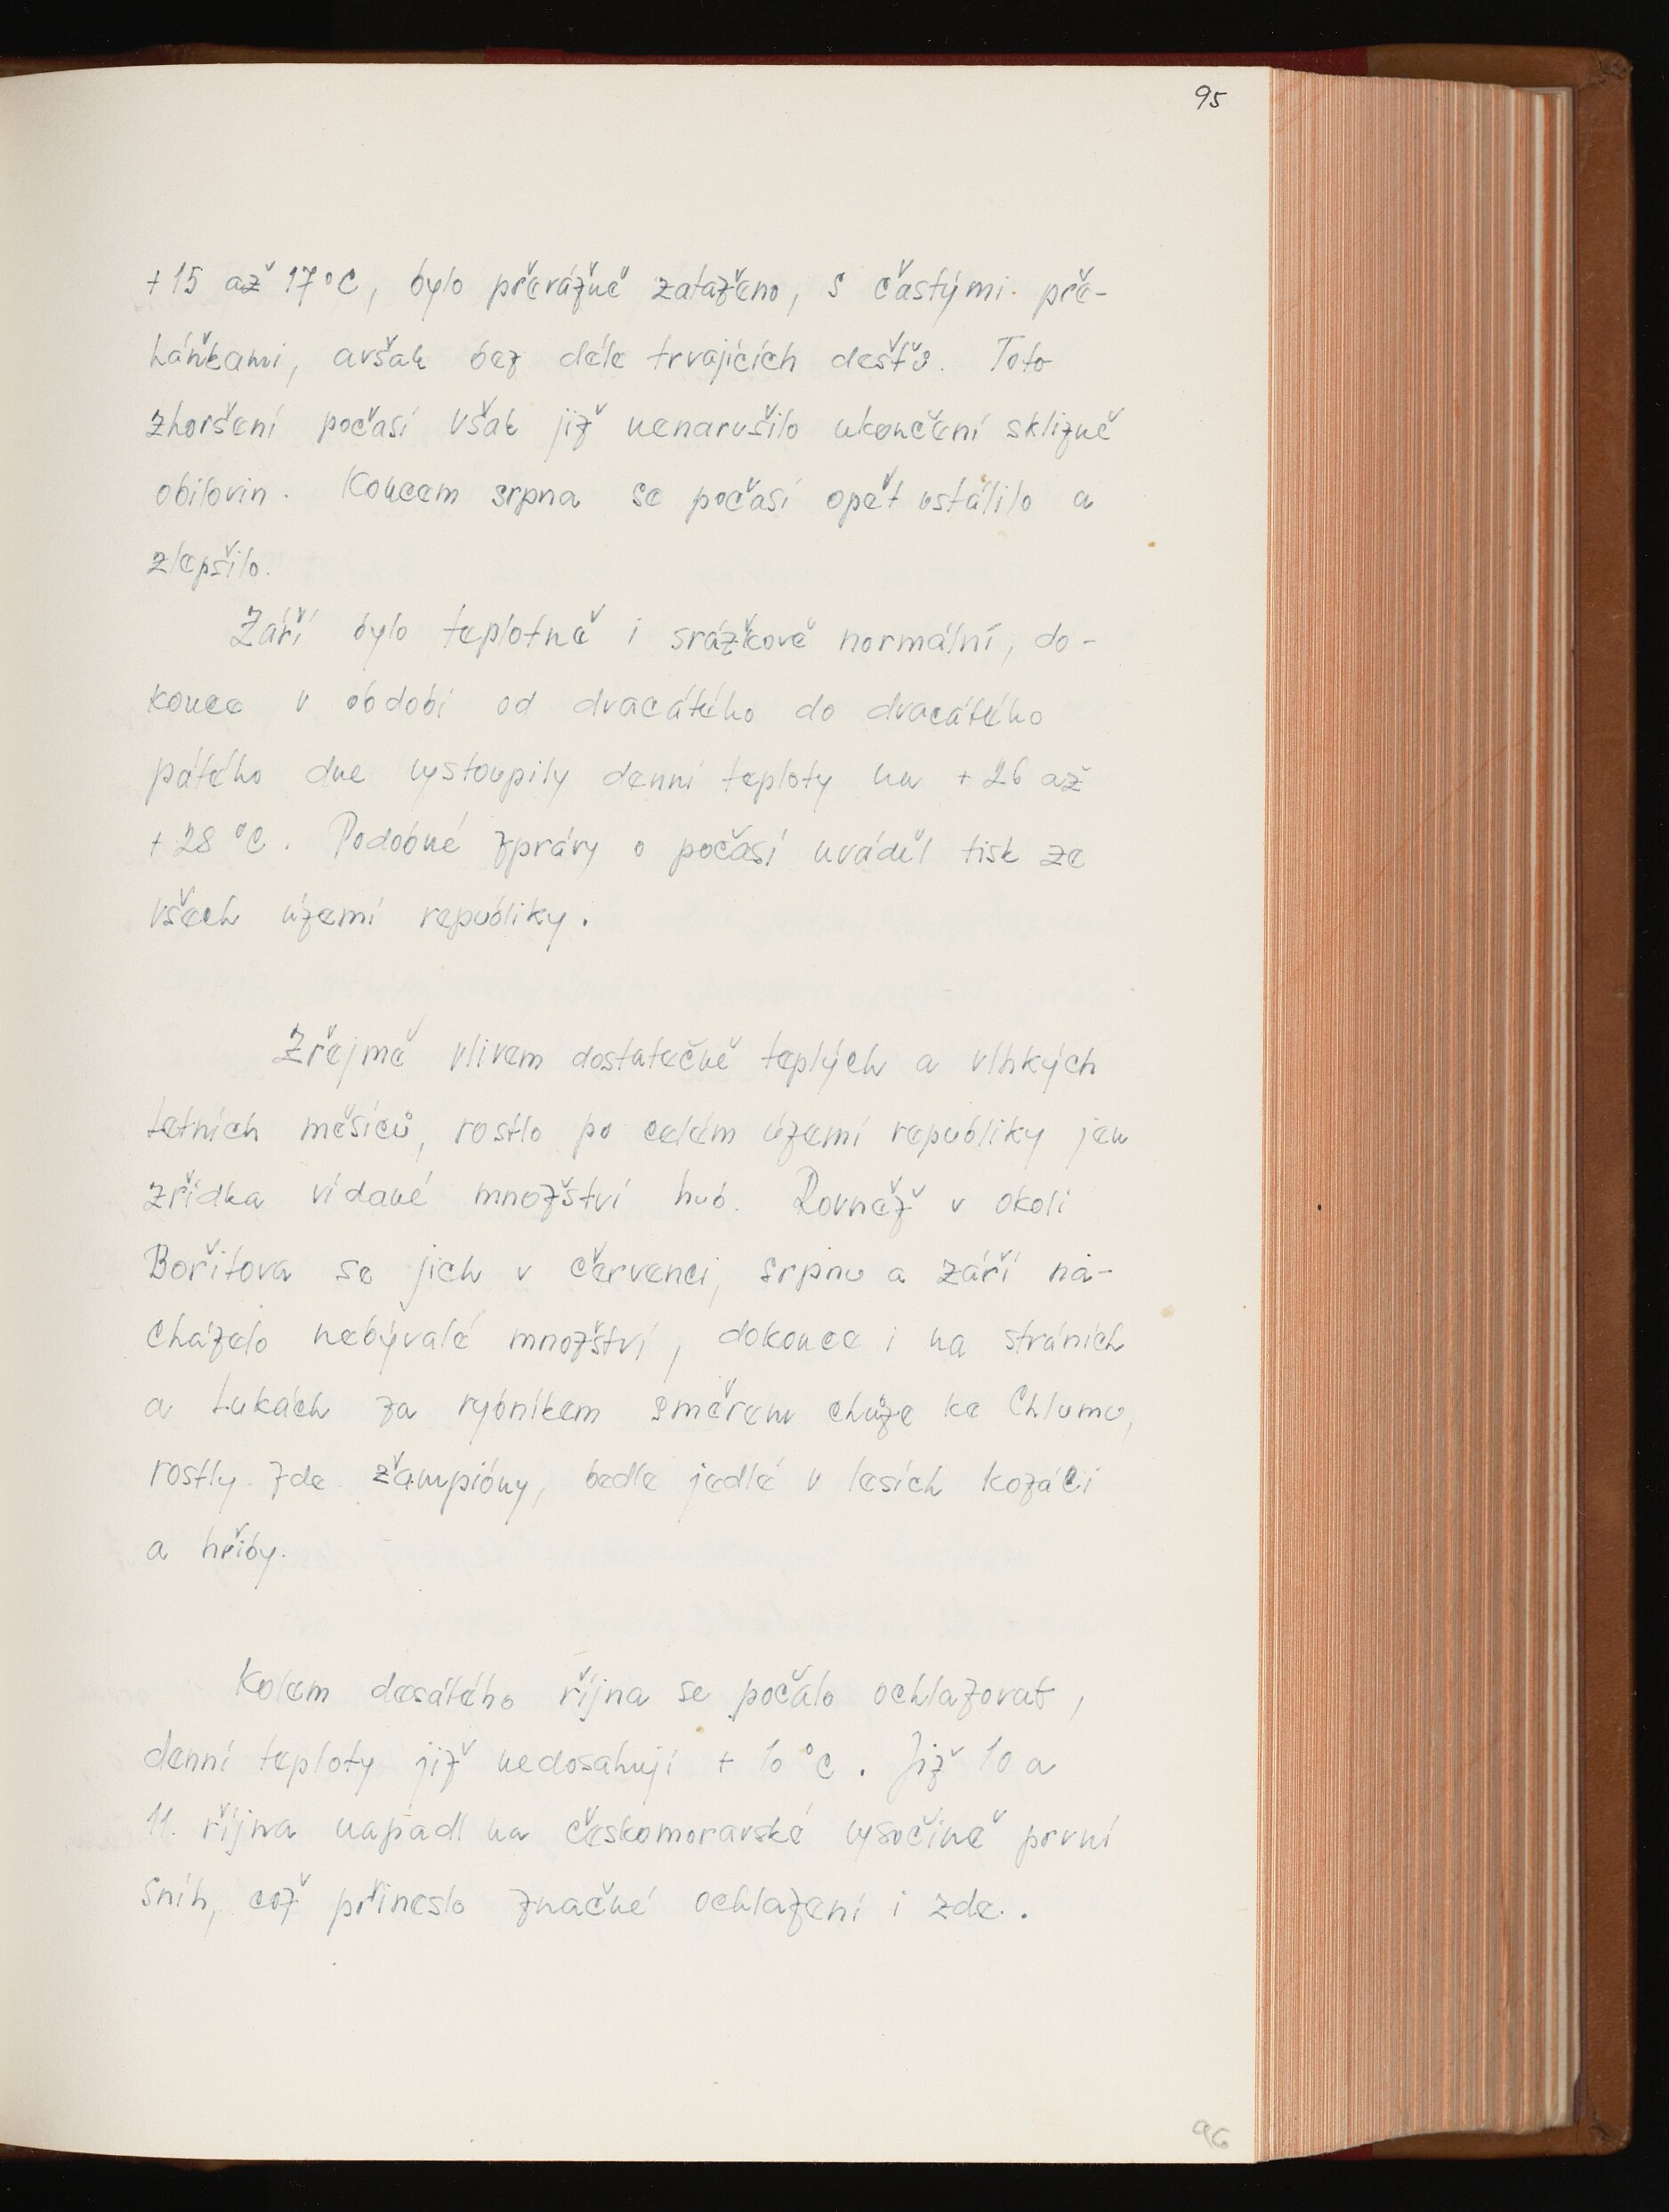 95
+15 až 17°C, bylo převážně zataženo, s častými pře-
háňkami, avšak bez déle trvajících dešťů. Toto
zhoršení počasí však již nenarušilo ukončení sklizně
obilovin. Koncem srpna se počasí opět ustálilo a
zlepšilo.
Září bylo teplotně i srážkově normální, do-
konce v období od dvacátého do dvacátého
pátého dne vystoupily denní teploty na +26 až
+28 °C. Podobné zprávy o počasí uváděl tisk ze
všech území republiky.
Zřejmě vlivem dostatečně teplých a vlhkých
letních měsíců, rostlo po celém území republiky jen
zřídka vídané množství hub. Rovněž v okolí
Bořitova se jich v červenci, srpnu a září na-
cházelo nebývalé množství, dokonce i na stráních
a lukách za rybníkem směrem chůze ke Chlumu,
rostly zde žampióny, bedle jedlé v lesích kozáci
a hřiby.
Kolem desátého října se počalo ochlazovat,
denní teploty již nedosahují + 10 °C. Již 10 a
11. října napadl na českomoravské vysočině první
sníh, což přineslo značné ochlazení i zde.
96